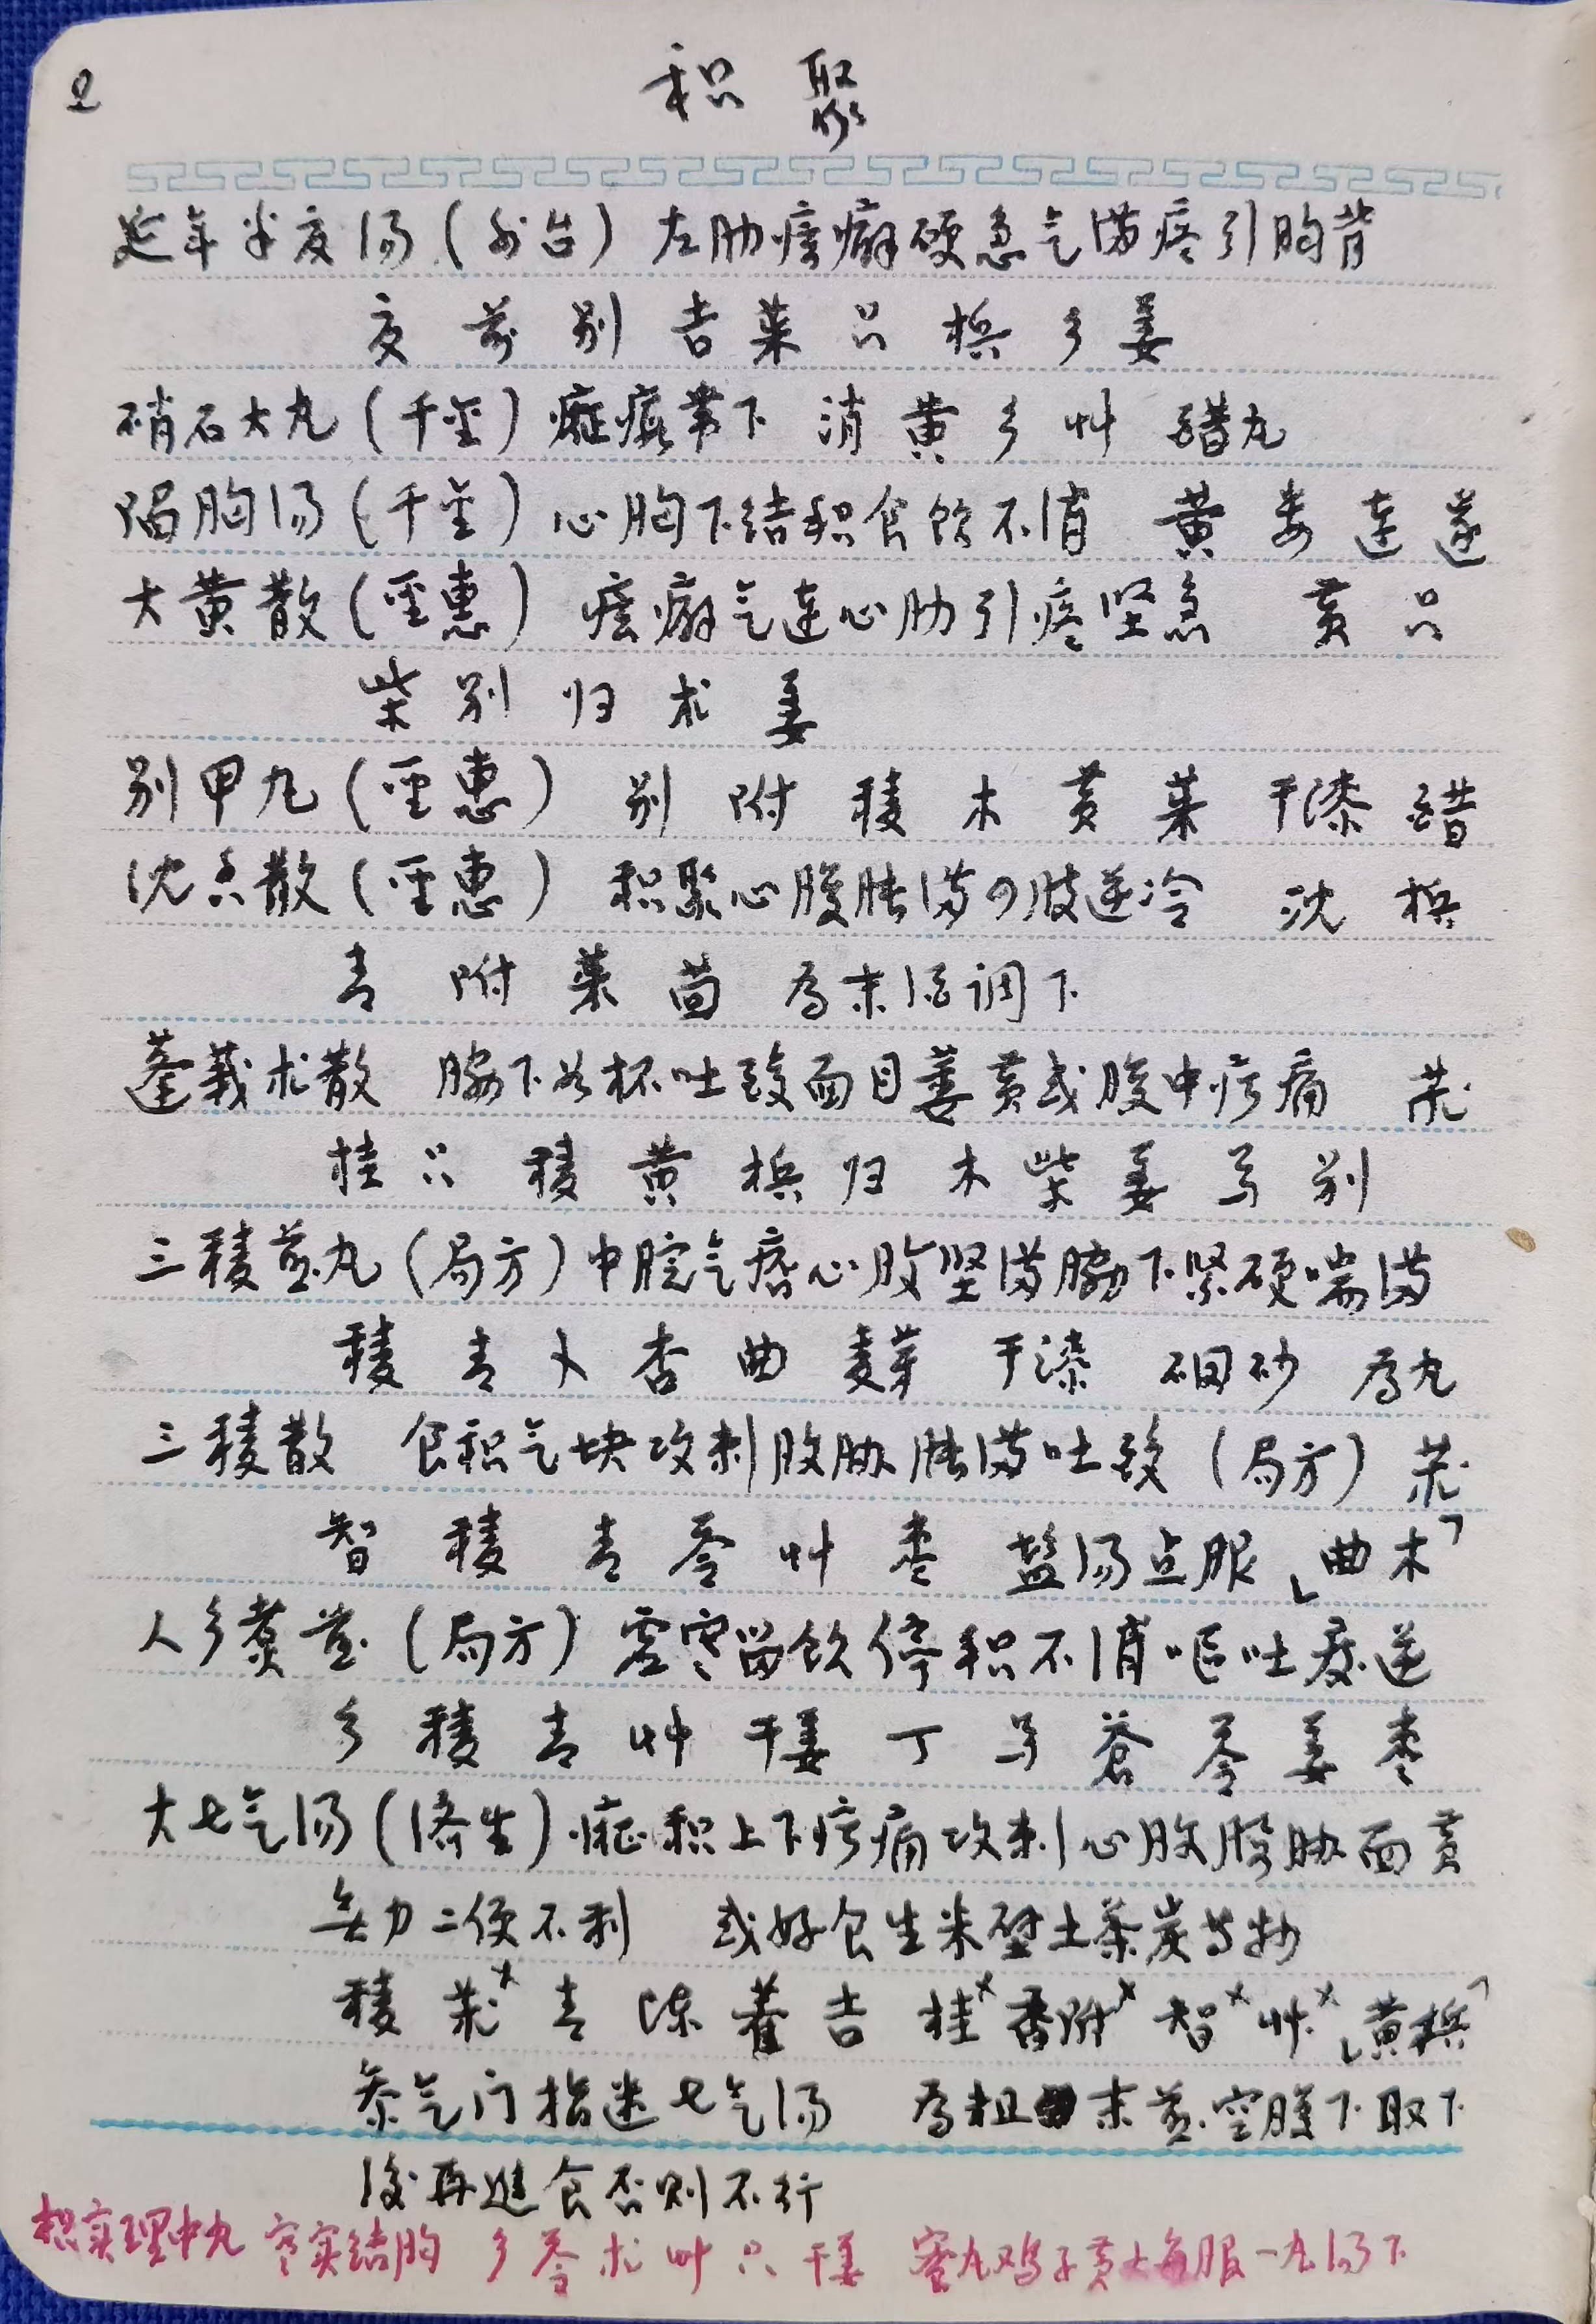 2
积聚
延年半夏汤(外台) 左肋痃癖硬急气满疼引胸背
夏 前 别 吉 菜 只 梹 乡 姜
硝石大丸(千金) 癥瘕带下 消 黄 乡 艸 醋丸
陷胸汤(千金) 心胸下结积食饮不消 黄 娄 连 遂
大黄散(圣惠) 痃癖气连心肋引疼坚急 黄 只
柴 别 归 术 姜
别甲丸(圣惠) 别 附 稜 木 黄 菜 干漆 醋
沈香散(圣惠) 积聚心腹胀满四肢逆冷 沈 梹
青 附 菜 茴 为末酒调下
蓬莪术散 脇下如杯吐酸面目萎黄或腹中疠痛 莪
桂 只 稜 黄 梹 归 木 柴 姜 芍 别
三稜煎丸(局方)中脘气痞心腹坚满脇下紧硬喘满
稜 青 卜 杏 曲 麦芽 干漆 硇砂 为丸
三稜散 食积气块攻刺腹胁胀满吐酸(局方) 莪
智 稜 青 苓 艸 枣 盐汤点服「曲木」
人乡煮散(局方) 虚寒留饮停积不消呕吐痰逆
乡 稜 青 艸 干姜 丁 芍 苍 苓 姜 枣
大七气汤(济生)癥积上下疠痛攻刺心腹腰胁面黄
无力二便不利 或好食生米壁土茶炭等物
稜 莪× 青 陈 藿 吉 桂× 香附× 智× 艸×「黄梹」
参气门指迷七气汤 为粗末煎空腹下取下
后再进食否则不行
枳实理中丸 寒实结胸 乡 苓 术 艸 只 干姜 蜜丸鸡子黄大每服一丸汤下